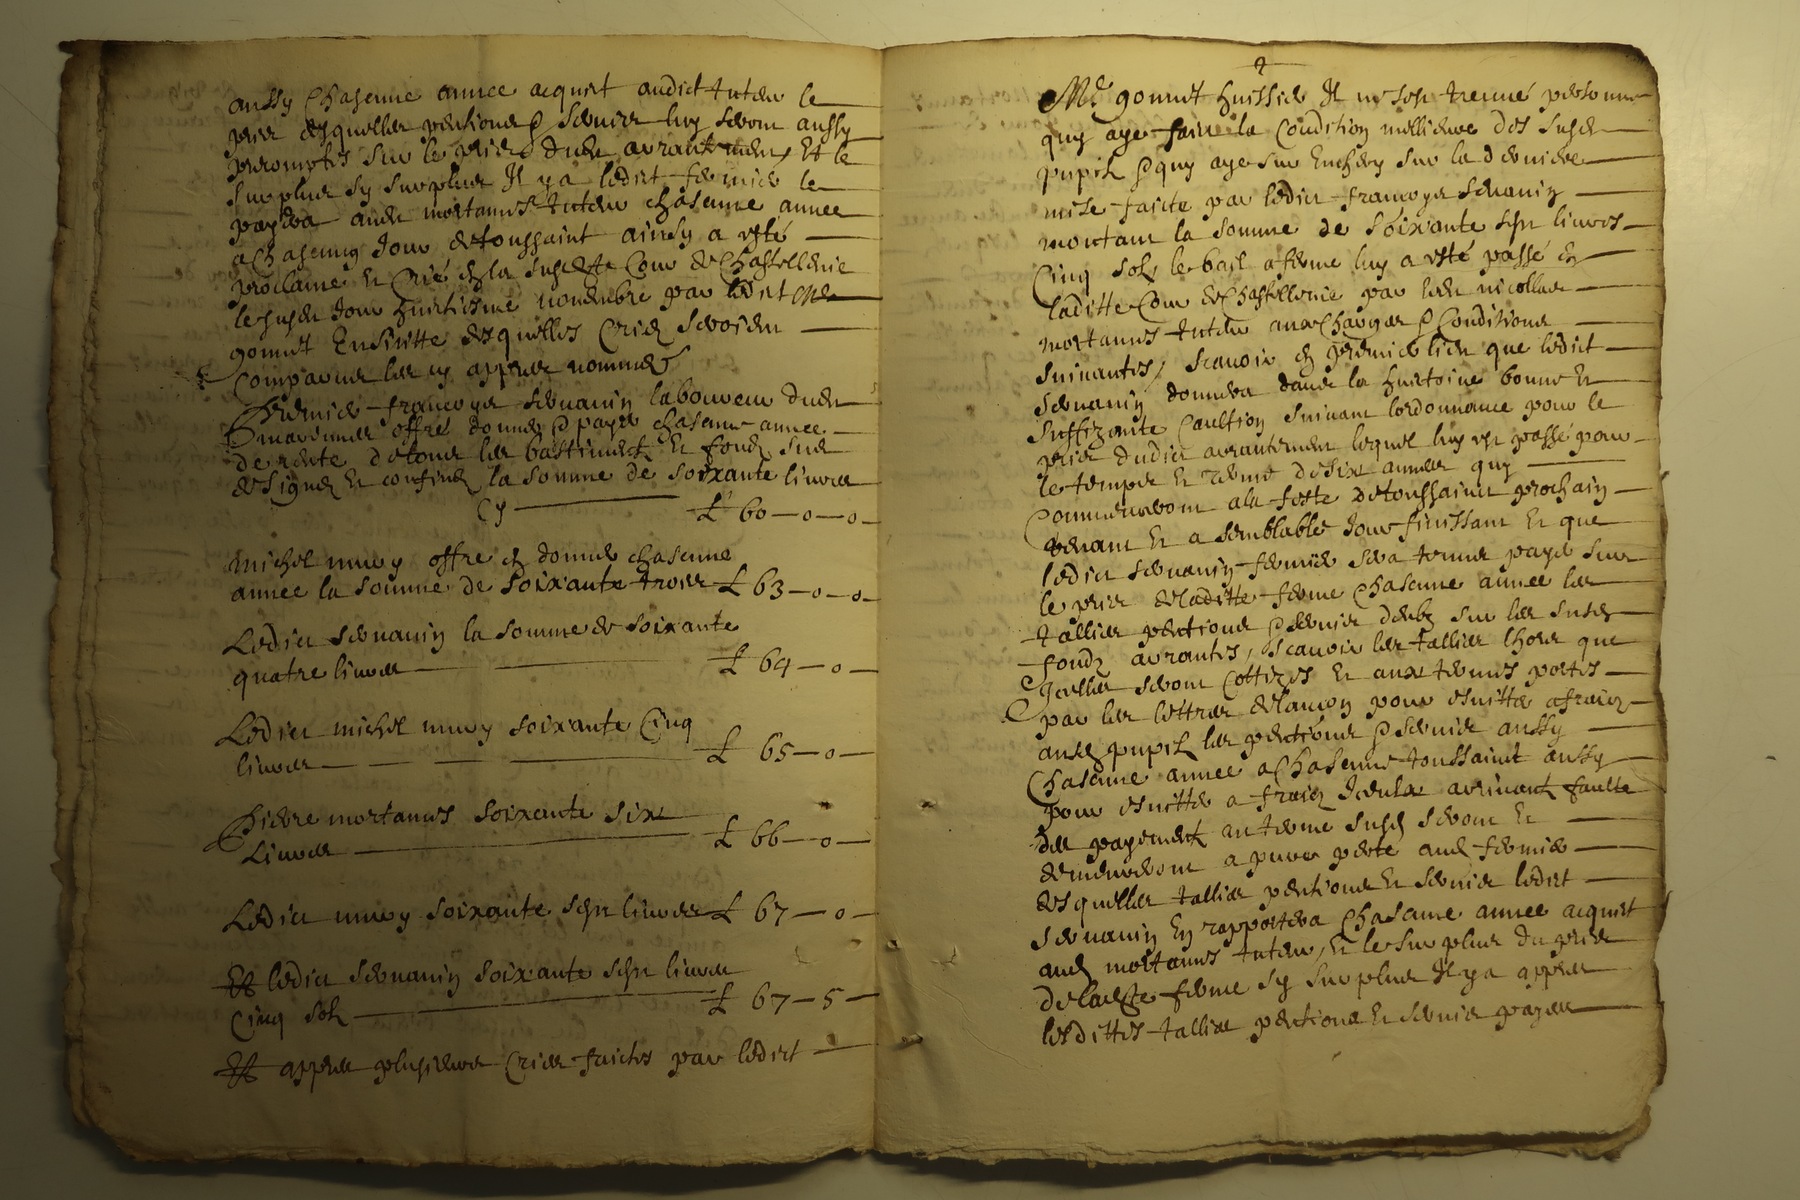 aussy chascune annee acquict audict tuteur le
prix desquelles pentions & servies luy seront aussy
precomptés sur le prix dudit arrantement Et le
surplus sy surplus Il y a ledict fermier le
payera audit mortamis tuteur chascune annee
a chascung Jour de toussaint ainsy a esté
proclamé Et Crié en la susditte Cour de Chastellenie
le susdit Jour huitiesme novembre par ledict Me
gonnet Ensuitte desquelles Cries seroient
Comparus les cy appres nommés
Premier francoys servanin laboureur dudit
offre donner & payer chascune annee
de rente de tous les bastiments Et fonds sus
designes Et confines la somme de soixante livres
Cy £ 60—o—o
michel offre en donner chascune
annee la somme de soixante trois £ 63—o—o
Ledict servanin la somme de soixante
quatre livres £ 64—o
Ledict michel soixante Cinq
livres £ 65—o
Pierre mortamis soixante six
Livres £ 66—o
Ledict soixante sept livres £ 67—o
Et ledict servanin soixante sept livres
Cinq sols £ 67—5
Et appres plusieurs Cries faictes par ledict
Me gonnet huissier Il ne sest treuvé personne
quy aye faict la Condition meilleure des susdits
pupils & quy aye sur Enchery sur la derniere
mise faicte par ledict francoys servanin
montant la somme de soixante sept livres
Cinq sols le bail a ferme luy a esté passé En
laditte Cour de Chastellenie par ledit nicollas
mortamis tuteur aux Charges & Conditions
suivantes, scavoir en premier lieu que ledict
servanin donnera dans la huictaine bonne Et
suffizante Caultion suivant lordonnance pour le
prix dudict arrantement lequel luy est passé pour
le temps Et terme de six annees quy
Commenceront a la feste de toussainct prochain
venant Et a semblable Jour finissant Et que
ledict servanin fermier sera tenu payer sur
le prix de laditte ferme Chascune annee les
tallies pentions & servis deubz sur les susdits
fonds arrantés, scavoir les tallies lhors que
Icelles seront Cottizes Et aux termes portés
par les lettres de lancon pour esvitter a fraicz
ausdits pupils les pentions & servis aussy
Chascune annee a Chascune toussainct aussy
pour esvitter a fraicz Iceulx arrivant faulte
de payement au terme susdit seront Et
demeureront a pure perte audit fermier
desquelles tallies pentions Et servis ledict
servanin En rapportera Chascune annee acquict
audit mortamis tuteur, Et le surplus du prix
de laditte ferme sy surplus Il y a appres
lesdittes tallies pentions Et servis payes